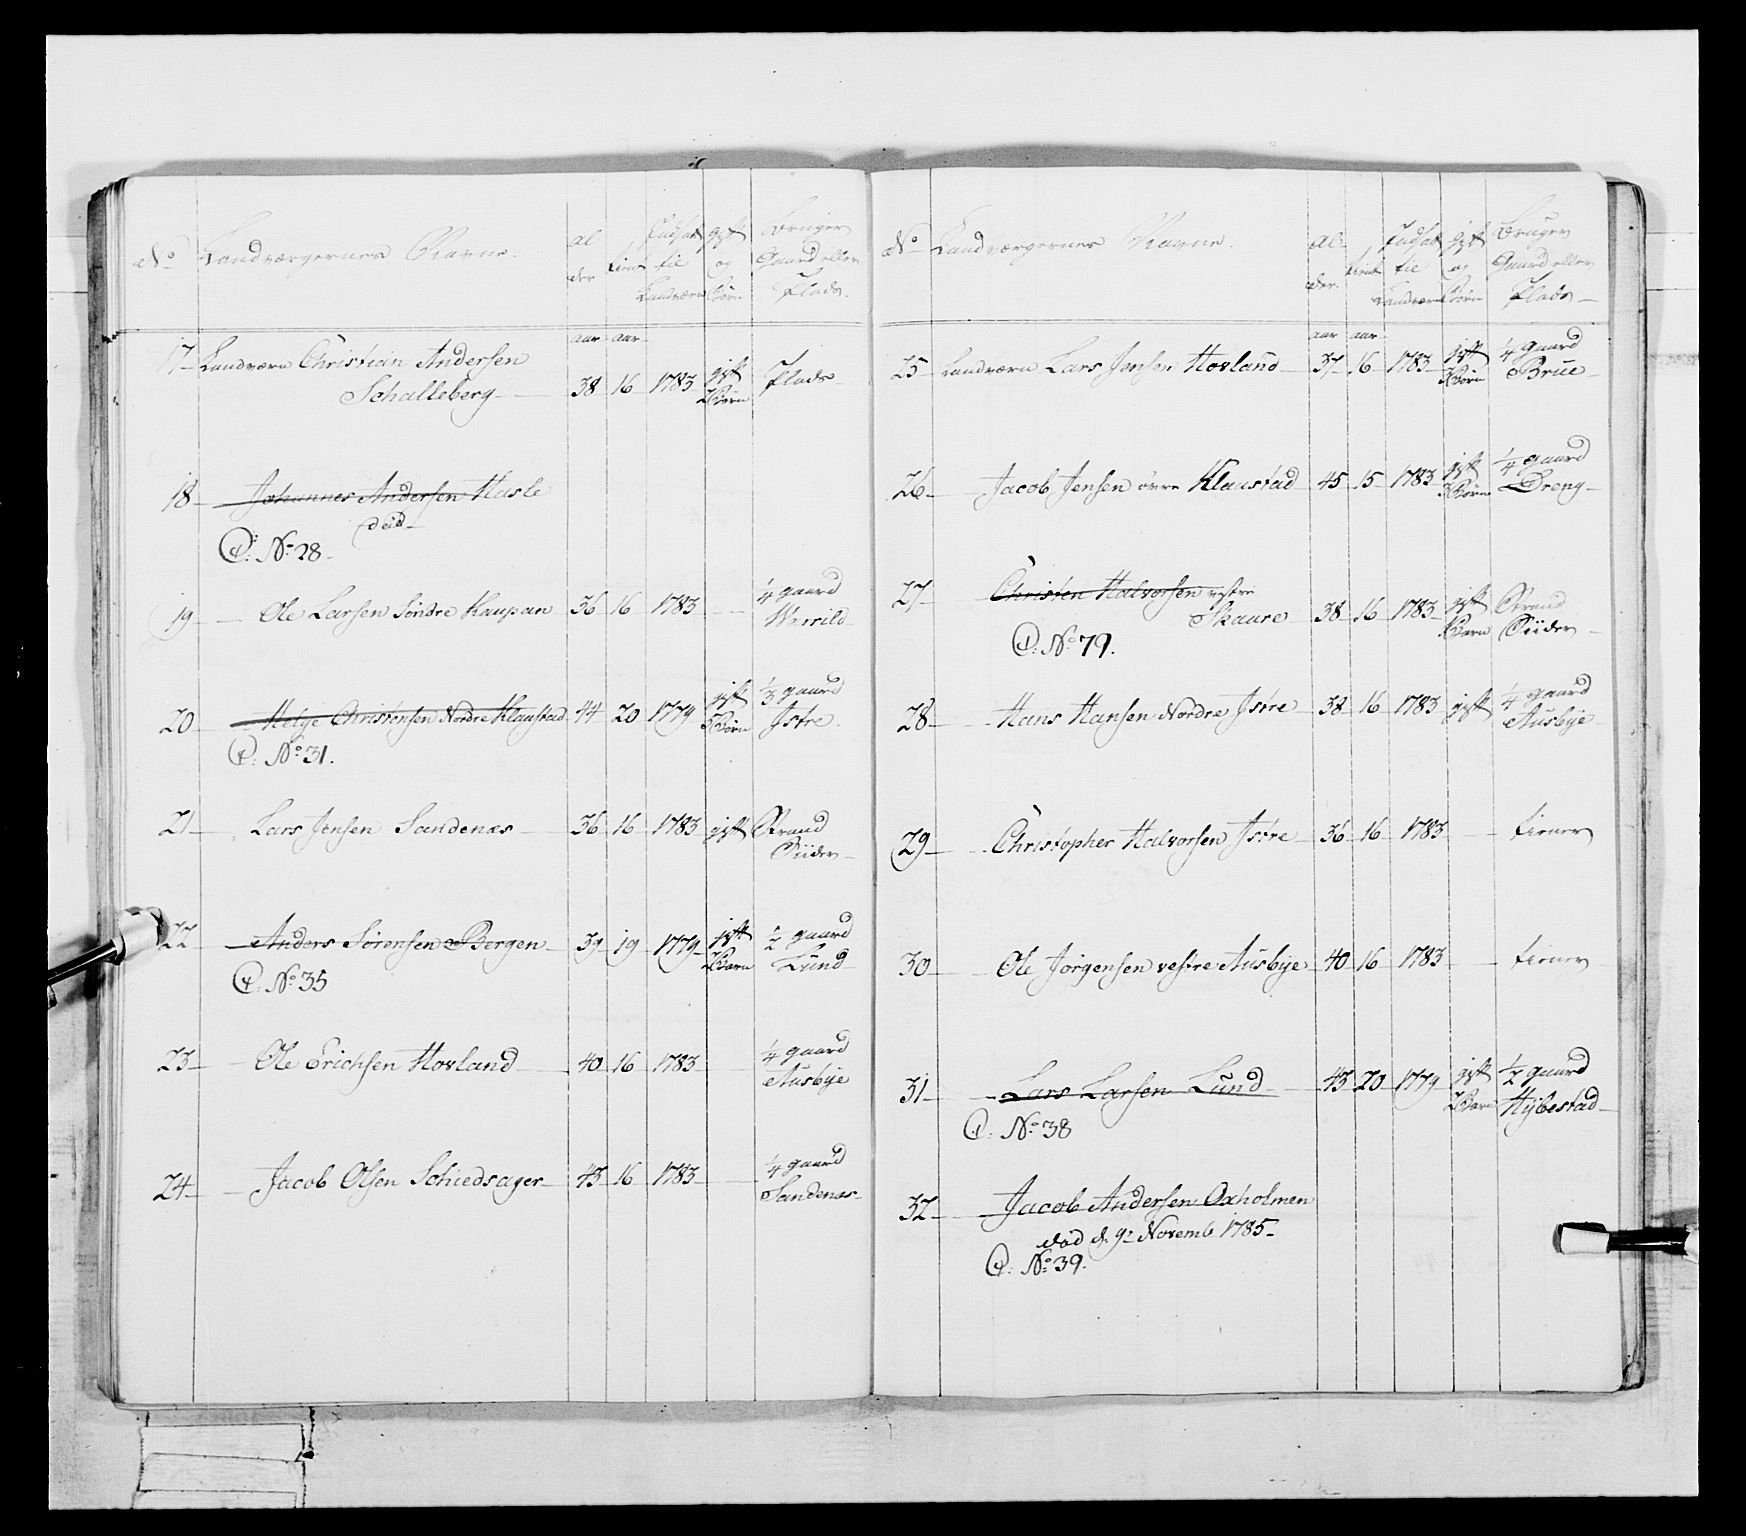 No Landværgernes Navne. al der tient Indsat til Landværn gift og Børn Bruger Gaard eller Plads.
aar aar
17 Landværn Christian Andersen
Schalleberg 38 16 1783 gift 2 Børn Plads
18 Johannes Andersen Hasle
død
C: No 28
19 Ole Larsen Søndre Kaupan 36 16 1783 1/4 gaard
Werrild
20 Helge Christensen Nordre Klaustad 44 20 1779 gift 5 Børn 1/3 gaard
Istre
C: No 31.
21 Lars Jensen Sandenæs 36 16 1783 gift Strand
Siider
22 Anders Sørensen Bergen 39 19 1779 gift 2 Barn 1/2 gaard
Lund
C: No 35
23 Ole Erichsen Hovland 40 16 1783 1/4 gaard
Ausbÿe
24 Jacob Olsen Schiedsager 43 16 1783 1/4 gaard
Sandenæs
No Landværgernes Navne. al der. tient Indsat til Landværn gift og Børn Bruger Gaard eller Plads
aar aar
25 Landværn Lars Jensen Hovland 37 16 1783 gift Børn 1/4 gaard
Brue
26 Jacob Jensen øvre Klaustad 45 15 1783 gift 3 Børn 1/4 gaard
Dreng
27 Christen Halvorsen vestre
Skaure 38 16 1783 gift 1 Barn Strand
Siider
C: No 79.
28 Hans Hansen Nordre Istre 38 16 1783 gift 1/4 gaard
Ausbÿe
29 Christopher Halvorsen Istre 36 16 1783 tiener
30 Ole Jørgensen vestre Ausbÿe 40 16 1783 tiener
31 Lars Larsen Lund 43 20 1779 gift 2 Barn 1/2 gaard
Hÿbestad
C: No 38
32 Jacob Andersen Oxholmen
død d. 9: Novemb. 1785
C: No 39.